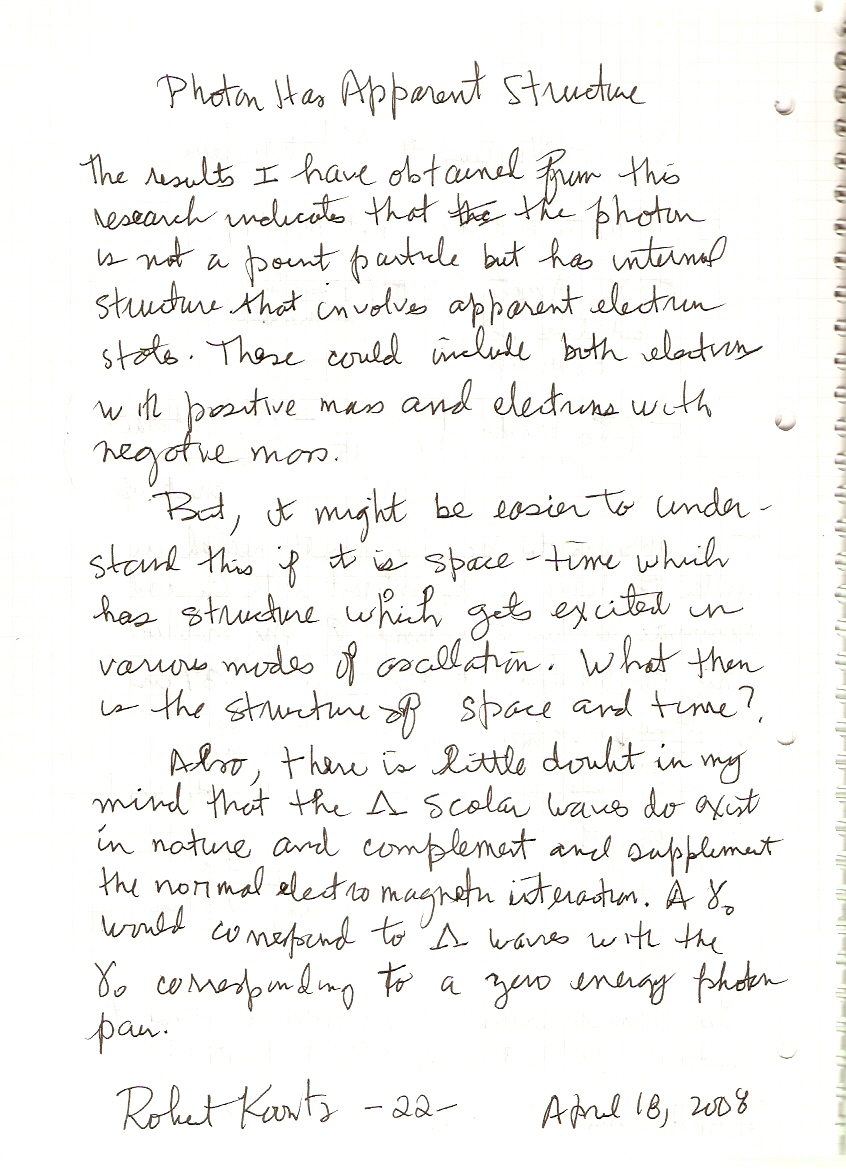 Photon Has Apparent Structure
The results I have obtained from this
research indicates that the the photon
is not a point particle but has internal
structure that involves apparent electron
states. These could include both electrons
with positive mass and electrons with
negative mass.
But, it might be easier to under-
stand this if it is space-time which
has structure which gets excited in
various modes of oscillation. What then
is the structure of space and time?
Also, there is little doubt in my
mind that the Λ scalar waves do exist
in nature and complement and supplement
the normal electromagnetic interaction. A γ₀
would correspond to Λ waves with the
γ₀ corresponding to a zero energy photon
pair.
Robert Koontz -22- April 18, 2008